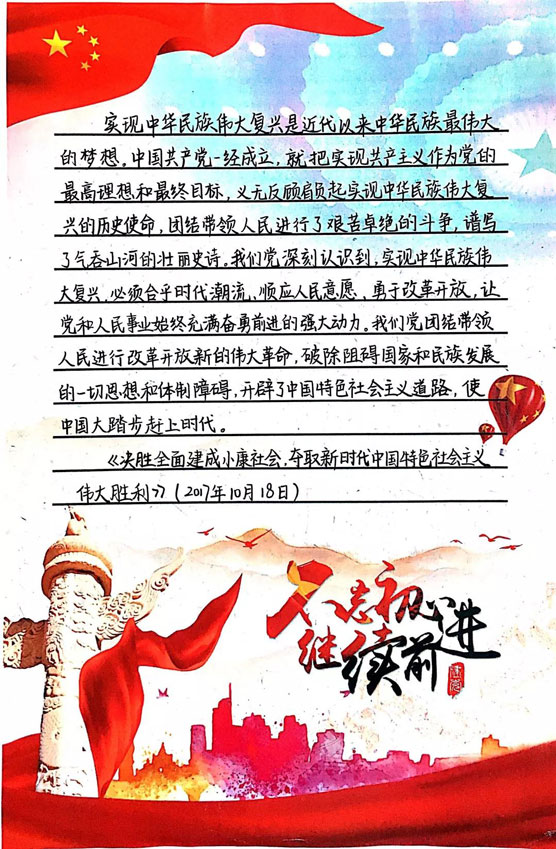 实现中华民族伟大复兴是近代以来中华民族最伟大
的梦想。中国共产党一经成立，就把实现共产主义作为党的
最高理想和最终目标，义无反顾肩负起实现中华民族伟大复
兴的历史使命，团结带领人民进行了艰苦卓绝的斗争，谱写
了气吞山河的壮丽史诗。我们党深刻认识到，实现中华民族伟
大复兴，必须合乎时代潮流、顺应人民意愿、勇于改革开放，让
党和人民事业始终充满奋勇前进的强大动力。我们党团结带领
人民进行改革开放新的伟大革命，破除阻碍国家和民族发展
的一切思想和体制障碍，开辟了中国特色社会主义道路，使
中国大踏步赶上时代。
《决胜全面建成小康社会，夺取新时代中国特色社会主义
伟大胜利》（2017年10月18日）
不忘初心
继续前进